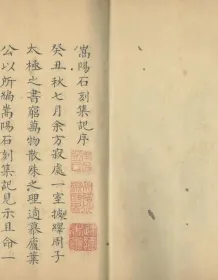 嵩陽石刻集記序
癸丑秋七月余方寂處一室擬繹周子
太極之書窮萬物散殊之理適慕廬葉
公以所編嵩陽石刻集記見示且命一